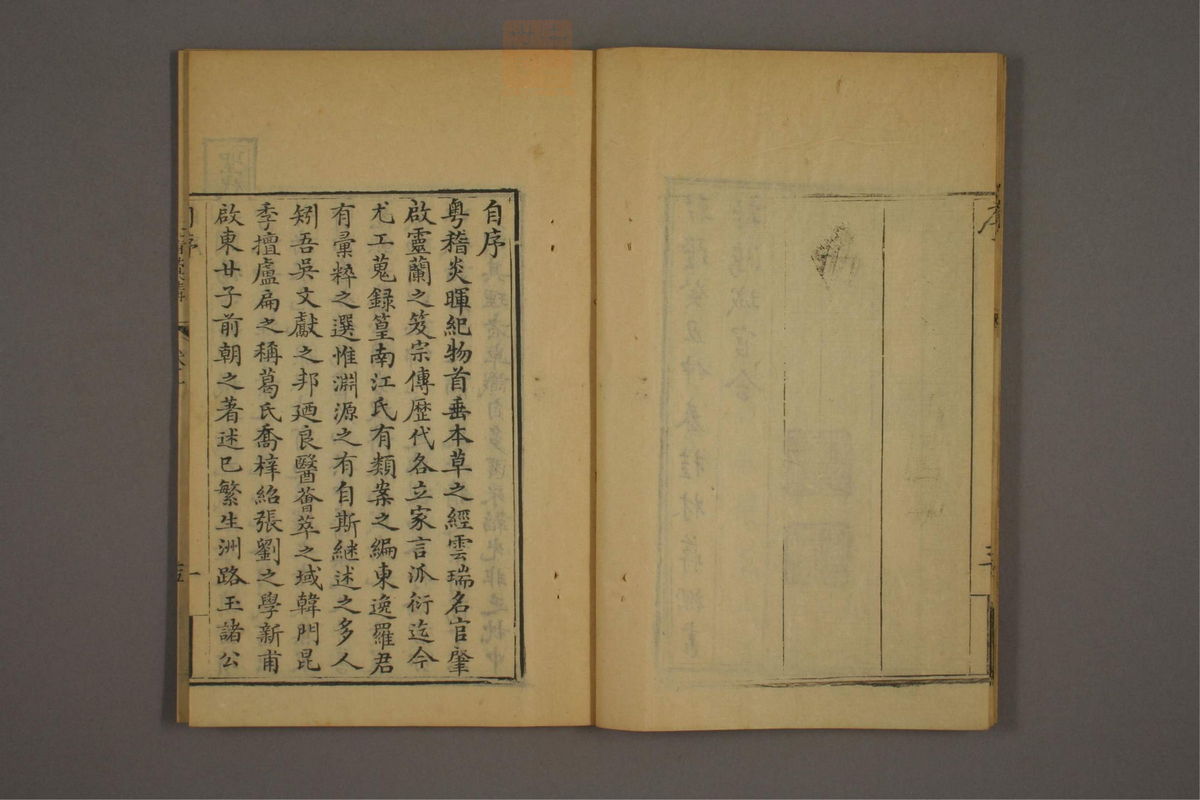 序
三
自序
粤稽炎暉紀物首垂本草之經雲瑞名官肇
啟靈蘭之笈宗傳歷代各立家言派衍迄今
尤工蒐録篁南江氏有類案之編東逸羅君
有彙粹之選惟淵源之有自斯継述之多人
矧吾吳文獻之邦廼良醫薈萃之域韓門昆
季擅盧扁之稱葛氏喬梓紹張劉之學新甫
啟東廿子前朝之著述已繁生洲路玉諸公
自序
一